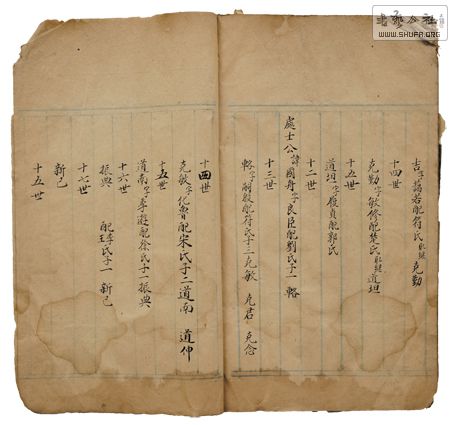 書法公社
WWW.SHUFA.ORG
吉字藹若配符氏 克勤
十四世
克勤字敏修配楚氏 道坦
十五世
道坦字履貞配郭氏
十二世
處士公諱國舟字良臣配劉氏子一輅
十三世
輅字嗣殷配符氏子三克敏 克君 克念
十四世
克敏字化魯配宋氏子二道南 道仲
十五世
道南字季遊配徐氏子一振興
十六世
振興 配李氏王氏子一 新已
十七世
新已
十五世